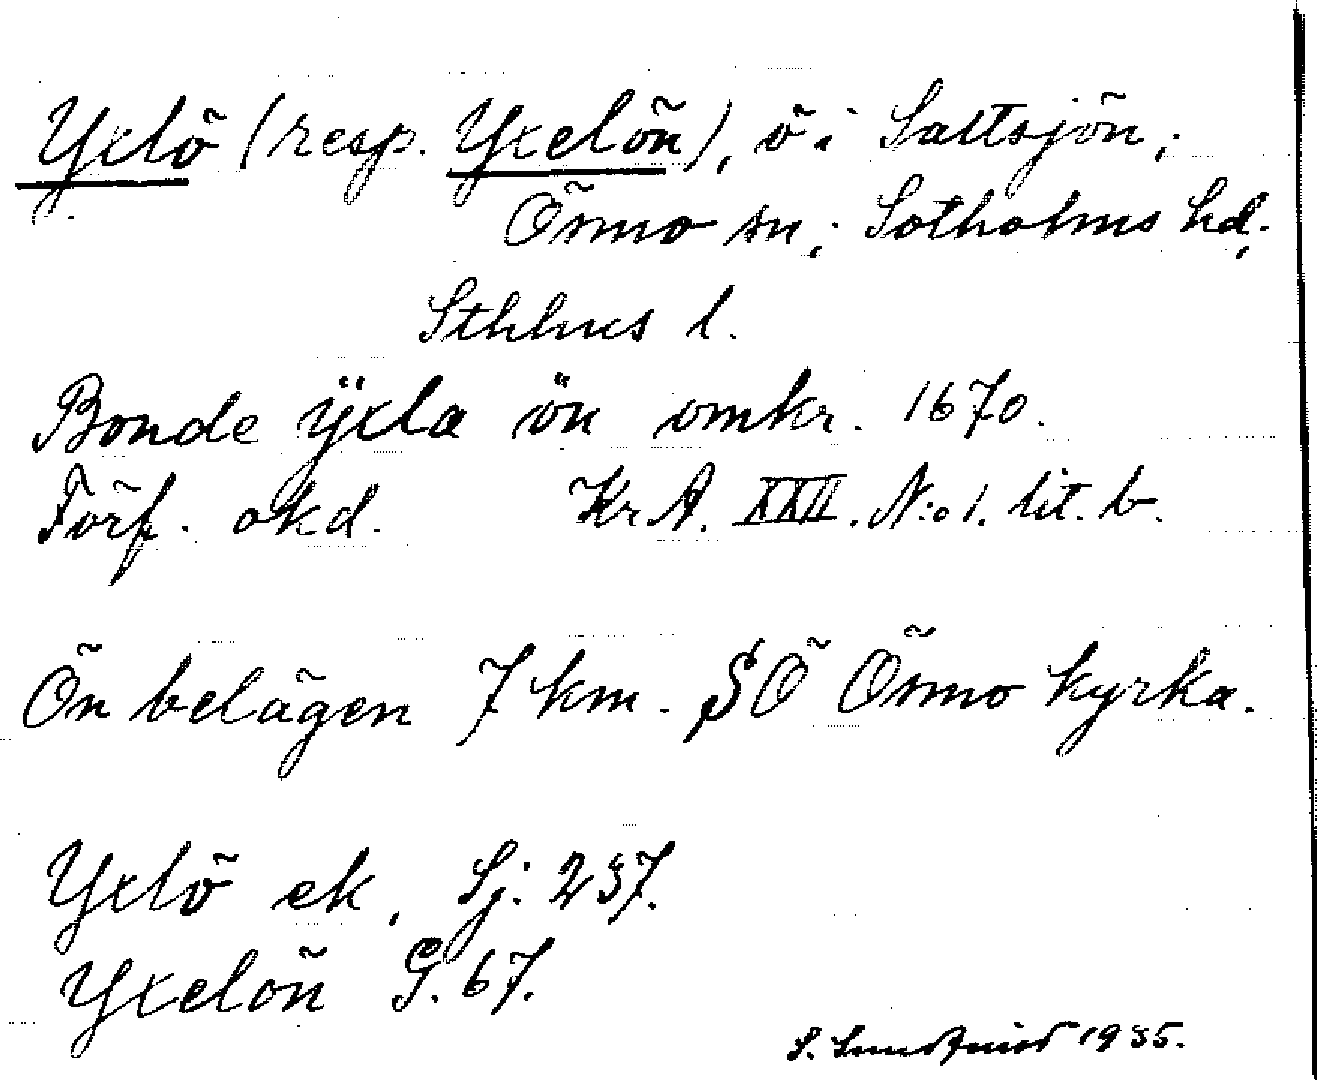 Yxlö (resp. Yxelön), ö i Saltsjön;
Ösmo sn; Sotholms hd;
Sthlms l.
Bonde ÿxla ön omkr. 1670.
Förf. okd. Kr A. XXII. N:o 1. lit. b.
Ön belägen 7 km. SÖ Ösmo kyrka.
Yxlö ek, Sj: 237.
Yxelön G. 67.
S. 1935.